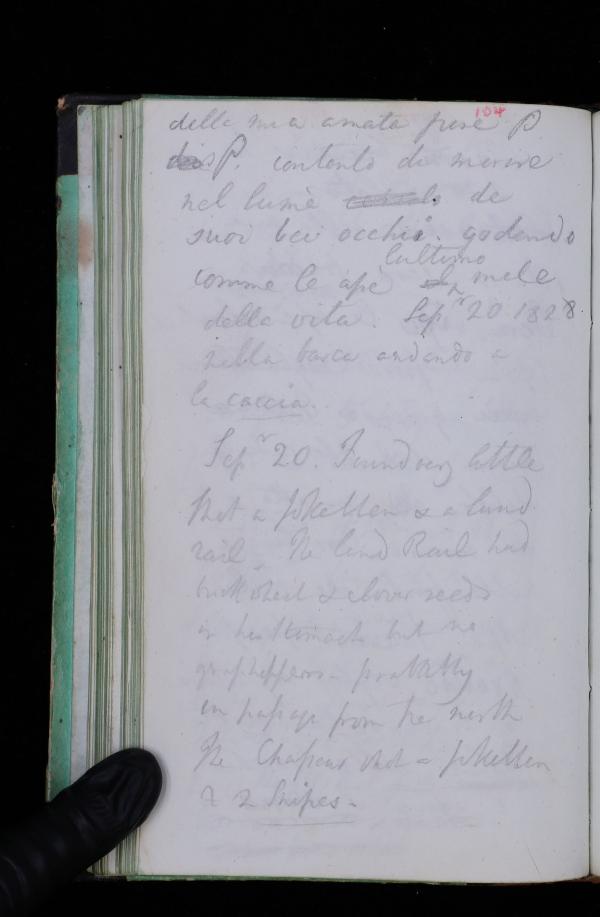 104
della mia amata pose P
dis P. contento di morire
nel lume de
suoi bei occhi. godendo
lultimo
comme le ape mele
della vita. Sepr 20 1828
nella barca andando a
la caccia.
Sepr 20. Found very little
Shot a Jokellen & a land
rail. The land Rail had
buckwheat & clover seeds
in his stomach but no
grasshoppers - probably
in passage from the north
The Chasseur shot a Jokellen
& 2 Snipes -